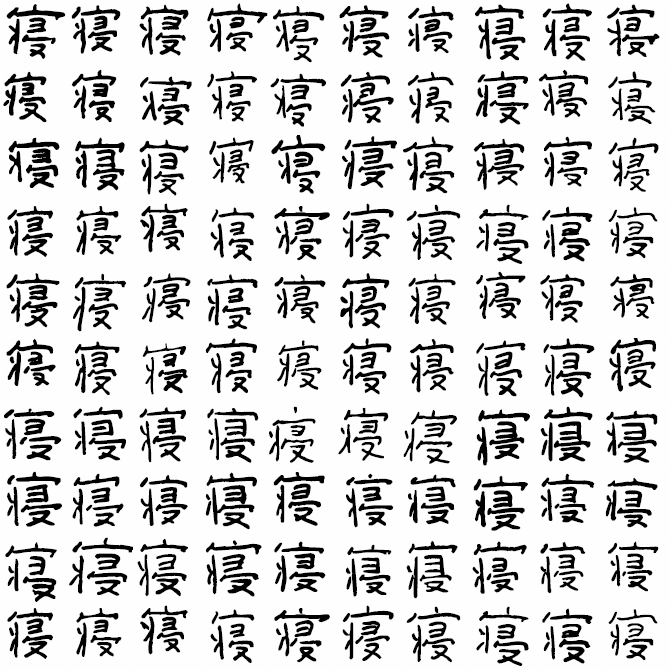 寝寝寝寝寝寝寝寝寝寝
寝寝寝寝寝寝寝寝寝寝
寝寝寝寝寝寝寝寝寝寝
寝寝寝寝寝寝寝寝寝寝
寝寝寝寝寝寝寝寝寝寝
寝寝寝寝寝寝寝寝寝寝
寝寝寝寝寝寝寝寝寝寝
寝寝寝寝寝寝寝寝寝寝
寝寝寝寝寝寝寝寝寝寝
寝寝寝寝寝寝寝寝寝寝